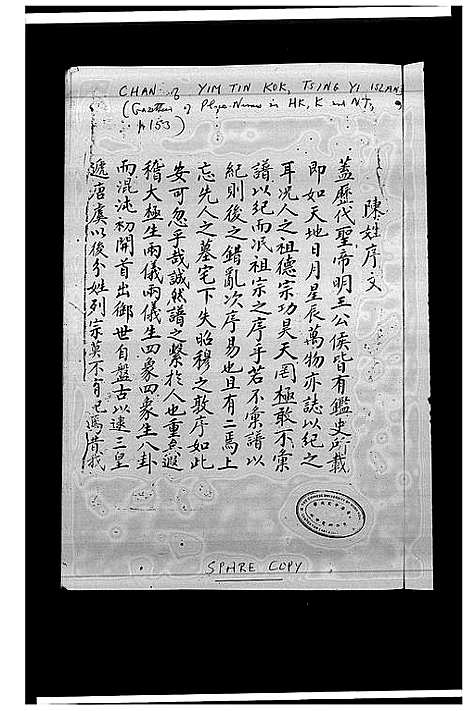 CHAN of YIM TIN KOK, TSING YI ISLAND
(Gazetteer of Place-Names in HK, K and NT,
p.153)
陳姓序文
蓋歷代聖帝明王公侯皆有鑑史所載
即如天地日月星辰萬物亦誌以紀之
耳况人之祖德宗功昊天罔極敢不彙
譜以紀而泯祖宗之序乎若不彙譜以
紀則後之錯亂次序易也且有二焉上
忘先人之墓宅下失昭穆之敦序如此
安可忽乎哉誠然譜之繫於人也重矣遐
稽大極生兩儀兩儀生四象四象生八卦
而混沌初開首出御世自盤古以逮三皇
遞唐虞以後分姓列宗莫不有也焉昔我
SPARE COPY